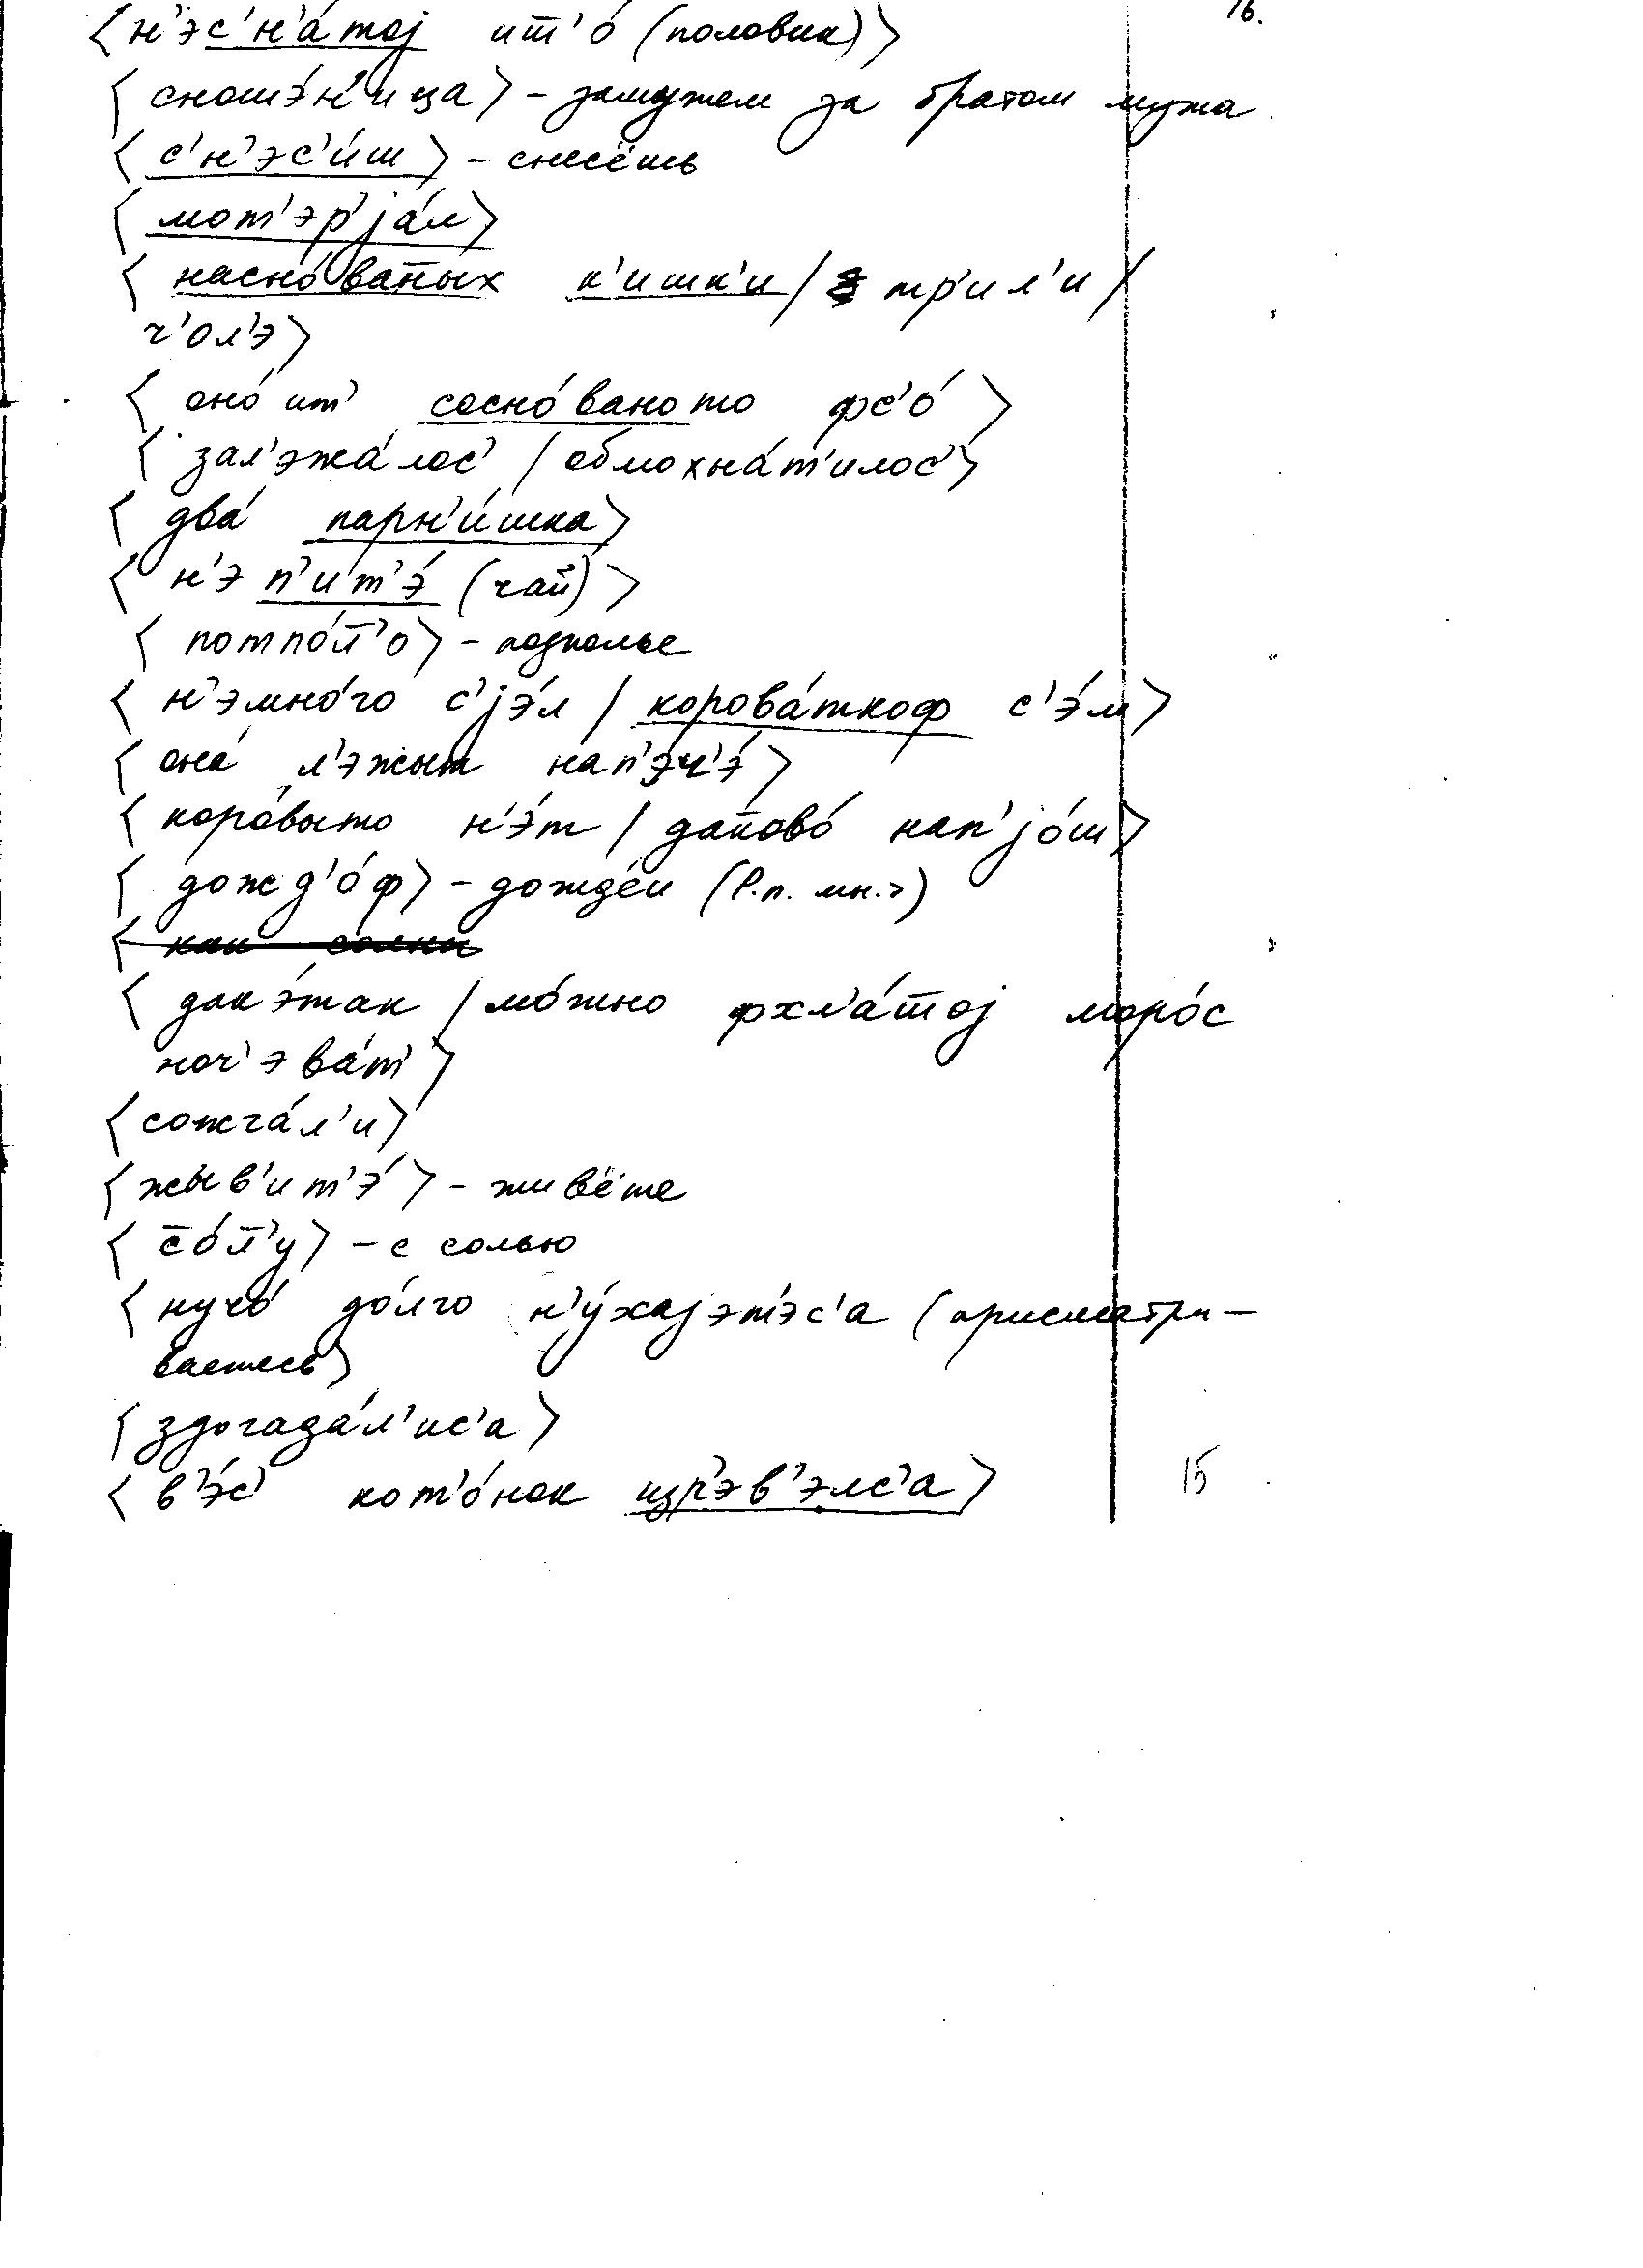 16.
⟨ н'эс'н'а́тој ит̄'о́ (половик)⟩
⟨ сношэ́н'ица⟩ – замужем за братом мужа
⟨ с'н'эс'и́ш ⟩ – снесёшь
⟨ мот'эр'jа́л⟩
⟨ насно́ван̄ых к'ишк'и / тр'ил'и /
ч'ол'э⟩
⟨ оно́ ит' сосно́вано то фс'о́ ⟩
⟨ зал'эжа́лос' / обмохна́т'илос'⟩
⟨ два́ парн'и́шка⟩
⟨ н'э п'ит'э́ (чай) ⟩
⟨ потпо́л̄'о⟩ – подполье
⟨ н'эмно́го с'jэ́л / корова́ткоф с'э́м⟩
⟨ она́ л'эжыт нап'эч'э́⟩
⟨ коро́выто н'э́т / дан̄ово́ нап'jо́ш⟩
⟨ дожд'о́ф⟩ – дожде́й (Р.п. мн.ч)
⟨ дак э́так / мо́жно фхл'а́т̄ој моро́с
ноч'эва́т'⟩
⟨сожга́л'и⟩
⟨жыв'ит'э́ ⟩ – живёте
⟨ с̄о́л̄'у⟩ – с солью
⟨ нучо́ до́лго н'у́хајэт'эс'а (присматри–
ваетесь⟩
⟨ здогада́л'ис'а⟩
⟨ в'э́с' кот'о́нок изр'эв'элс'а⟩
15